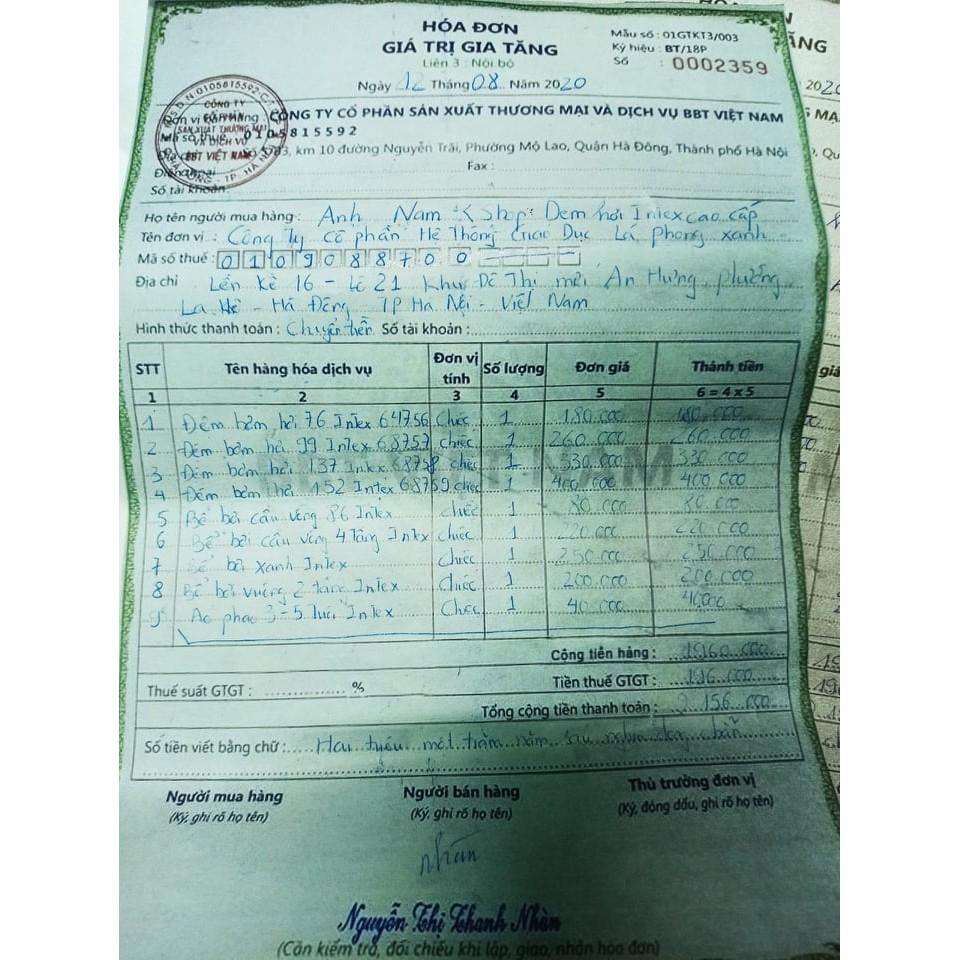 HÓA ĐƠN
GIÁ TRỊ GIA TĂNG
Liên 3 : Nội bộ
Ngày 12 Tháng 08 Năm 2020
Mẫu số : 01GTKT3/003
Ký hiệu : BT/18P
Số : 0002359
Đơn vị bán hàng : CÔNG TY CỔ PHẦN SẢN XUẤT THƯƠNG MẠI VÀ DỊCH VỤ BBT VIỆT NAM
Mã số thuế : 0105815592
km 10 đường Nguyễn Trãi, Phường Mộ Lao, Quận Hà Đông, Thành phố Hà Nội
Điện thoại Fax :
Số tài khoản:
Họ tên người mua hàng : Anh Nam Shop Đem hơi Intex cao cấp
Tên đơn vị : Công Ty cổ phần Hệ Thống Giáo Dục Lá phong xanh
Mã số thuế : 0109088700
Địa chỉ Lền kề 16 - Lô 21 Khu Đô Thị mới An Hưng, phường
La Khê - Hà Đông - TP Hà Nội - Việt Nam
Hình thức thanh toán : Chuyển tiền Số tài khoản :
STT Tên hàng hóa dịch vụ Đơn vị tính Số lượng Đơn giá Thành tiền
1 2 3 4 5 6 = 4 x 5
1 Đêm bơm hơi 76 Intex 64756 Chiếc 1 180.000 180.000
2 Đêm bơm hơi 99 Intex 68757 chiếc 1 260.000 260.000
3 Đêm bơm hơi 137 Intex 68758 chiếc 1 330.000 330.000
4 Đêm bơm hơi 152 Intex 68759 chiếc 1 400.000 400.000
5 Bể bơi cầu vồng 86 Intex chiếc 1 80.000 80.000
6 Bể bơi cầu vồng 4 tầng Intex chiếc 1 220.000 220.000
7 Bể bơi xanh Intex chiếc 1 250.000 250.000
8 Bể bơi vuông 2 tầng Intex Chiếc 1 200.000 200.000
9 Áo phao 3-5 tuổi Intex Chiếc 1 40.000 40.000
Cộng tiền hàng : 1.960.000
Thuế suất GTGT : % Tiền thuế GTGT : 196.000
Tổng cộng tiền thanh toán : 2.156.000
Số tiền viết bằng chữ : Hai triệu một trăm năm sáu nghìn đồng chẵn
Người mua hàng Người bán hàng Thủ trưởng đơn vị
(Ký, ghi rõ họ tên) (Ký, ghi rõ họ tên) (Ký, đóng dấu, ghi rõ họ tên)
nhàn
Nguyễn Thị Thanh Nhàn
(Cần kiểm tra, đối chiếu khi lập, giao, nhận hóa đơn)